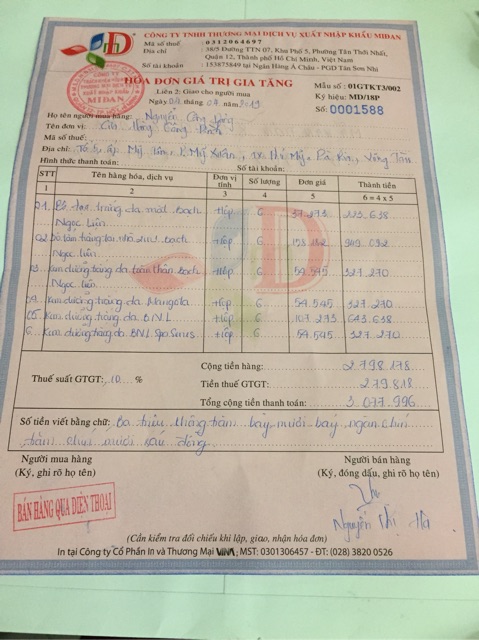 CÔNG TY TNHH THƯƠNG MẠI DỊCH VỤ XUẤT NHẬP KHẨU MIDAN
Mã số thuế : 0312064697
Địa chỉ : 38/5 Đường TTN 07, Khu Phố 5, Phường Tân Thới Nhất,
Quận 12, Thành phố Hồ Chí Minh, Việt Nam
Số tài khoản : 153875849 tại Ngân Hàng Á Châu - PGD Tân Sơn Nhì
HÓA ĐƠN GIÁ TRỊ GIA TĂNG
Liên 2: Giao cho người mua
Ngày 04 tháng 04 năm 2019
Mẫu số : 01GTKT3/002
Ký hiệu: MD/18P
Số: 0001588
CÔNG TY
MIDAN
Họ tên người mua hàng: Nguyễn Công
Tên đơn vị: Cửa Hàng Công
Mã số thuế:
Địa chỉ: Tổ 5, ấp Mỹ Tân, Mỹ Xuân, Phú Mỹ, Bà Rịa, Vũng Tàu
Hình thức thanh toán: Số tài khoản:
STT Tên hàng hóa, dịch vụ Đơn vị tính Số lượng Đơn giá Thành tiền
1 2 3 4 5 6 = 4 x 5
01 trắng da mặt Bạch Hộp 6 37.273 223.638
Ngọc Liên
02 Bạch Hộp 6 909.092
Ngọc Liên
03 Kem dưỡng trắng da toàn thân Bạch Hộp 6 54.545 327.270
Ngọc Liên
04 Kem dưỡng trắng da Hộp 6 54.545 327.270
05 Kem dưỡng trắng da B.N.L Hộp 6 107.273 643.638
6 Kem dưỡng trắng da B.N.L Spa Hộp 6 54.545 327.270
Cộng tiền hàng: 2.798.178
Thuế suất GTGT: 10 % Tiền thuế GTGT: 279.818
Tổng cộng tiền thanh toán: 3.077.996
Số tiền viết bằng chữ: Ba triệu không trăm bảy mươi bảy ngàn chín
trăm chín mươi sáu đồng
Người mua hàng Người bán hàng
(Ký, ghi rõ họ tên) (Ký, đóng dấu, ghi rõ họ tên)
BÁN HÀNG QUA ĐIỆN THOẠI
Nguyễn Thị Hà
(Cần kiểm tra đối chiếu khi lập, giao, nhận hóa đơn)
In tại Công ty Cổ Phần In và Thương Mại VINA; MST: 0301306457 - ĐT: (028) 3820 0526